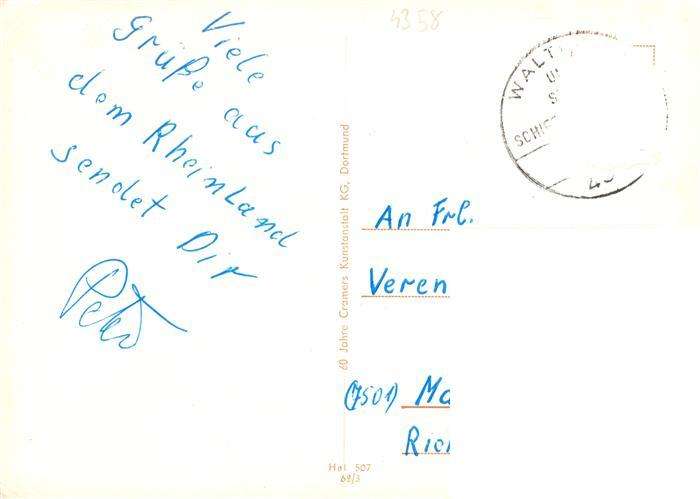 4358
Viele
Grüße aus
dem Rheinland
sendet Dir
Peter
60 Jahre Cramers Kunstanstalt KG, Dortmund
WALT
SCHI
An Frl.
Veren
(7501) Ma
Hal 507
69/3